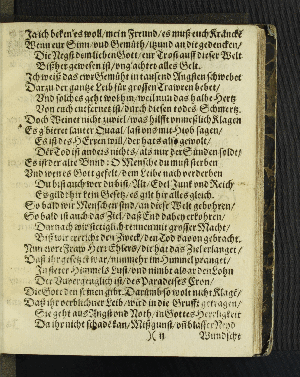 Ja ich beken'es woll/mein Freund/es muß euch Kräncke
Wenn eur Sinn und Gemüth/itzund an die gedencken/
Die Negst dem lieben Gott/eur Trost auff dieser Welt
Bißher gewesen ist/ungʼachter alles Gelt.
Ich weiß das ewr Gemüht in tausend Ängsten schwebet
Darzu der gantze Leib für grossen Trawren bebet/
Und solches geht wohl hin/weil nun das halbe Hertz
Von euch entfernet ist/durch diesen todes Schmertz.
Doch Weinet nicht zuviel/was hilfft unmeßlich Klagen
Es gʼbieret lauter Quaal/last ons mit Hiob sagen/
Es ist des HErren will/der hats also gewolt/
Der Tod ist anders nichts/als nur der Sünden soldt/
Es ist der alte Bund: O Mensche du must sterben
Und wenn es Gott gefelt/dem Leibe nach verderben
Du bist auch wer du bist. Alt/Edel Junck und Reich
Es gildt hir kein Gesetz/es geht hir alles gleich.
So bald wir Menschen sind/an diese Welt gebohren/
So bald ist auch das Ziel/daß End daben erkohren/
Darnach wir stetiglich rennen mit grosser Macht/
Biß wir erreicht den Zweck/den Tod davon gebracht.
Nun ewre Fraw Herr Ehlers/die hat das Ziel erlanget/
Daß ihr gesetzet war/nunmehr im Himmel pranget/
In steter Himmels Lust/und nimbt alda den Lohn
Der Unvergenglich ist/des Paradeises Cron/
Die Gott den seinen gibt. Darümb ist wolt nicht Klagē/
Daß ihr verblichner Leib/wird in die Grufft getragen/
Sie geht aus Angst und Noth/in Gottes Herrligkeit
Da ihr nicht schadet kan/Mißgunst/oñ blasser Neyd
)( ij Wundscht